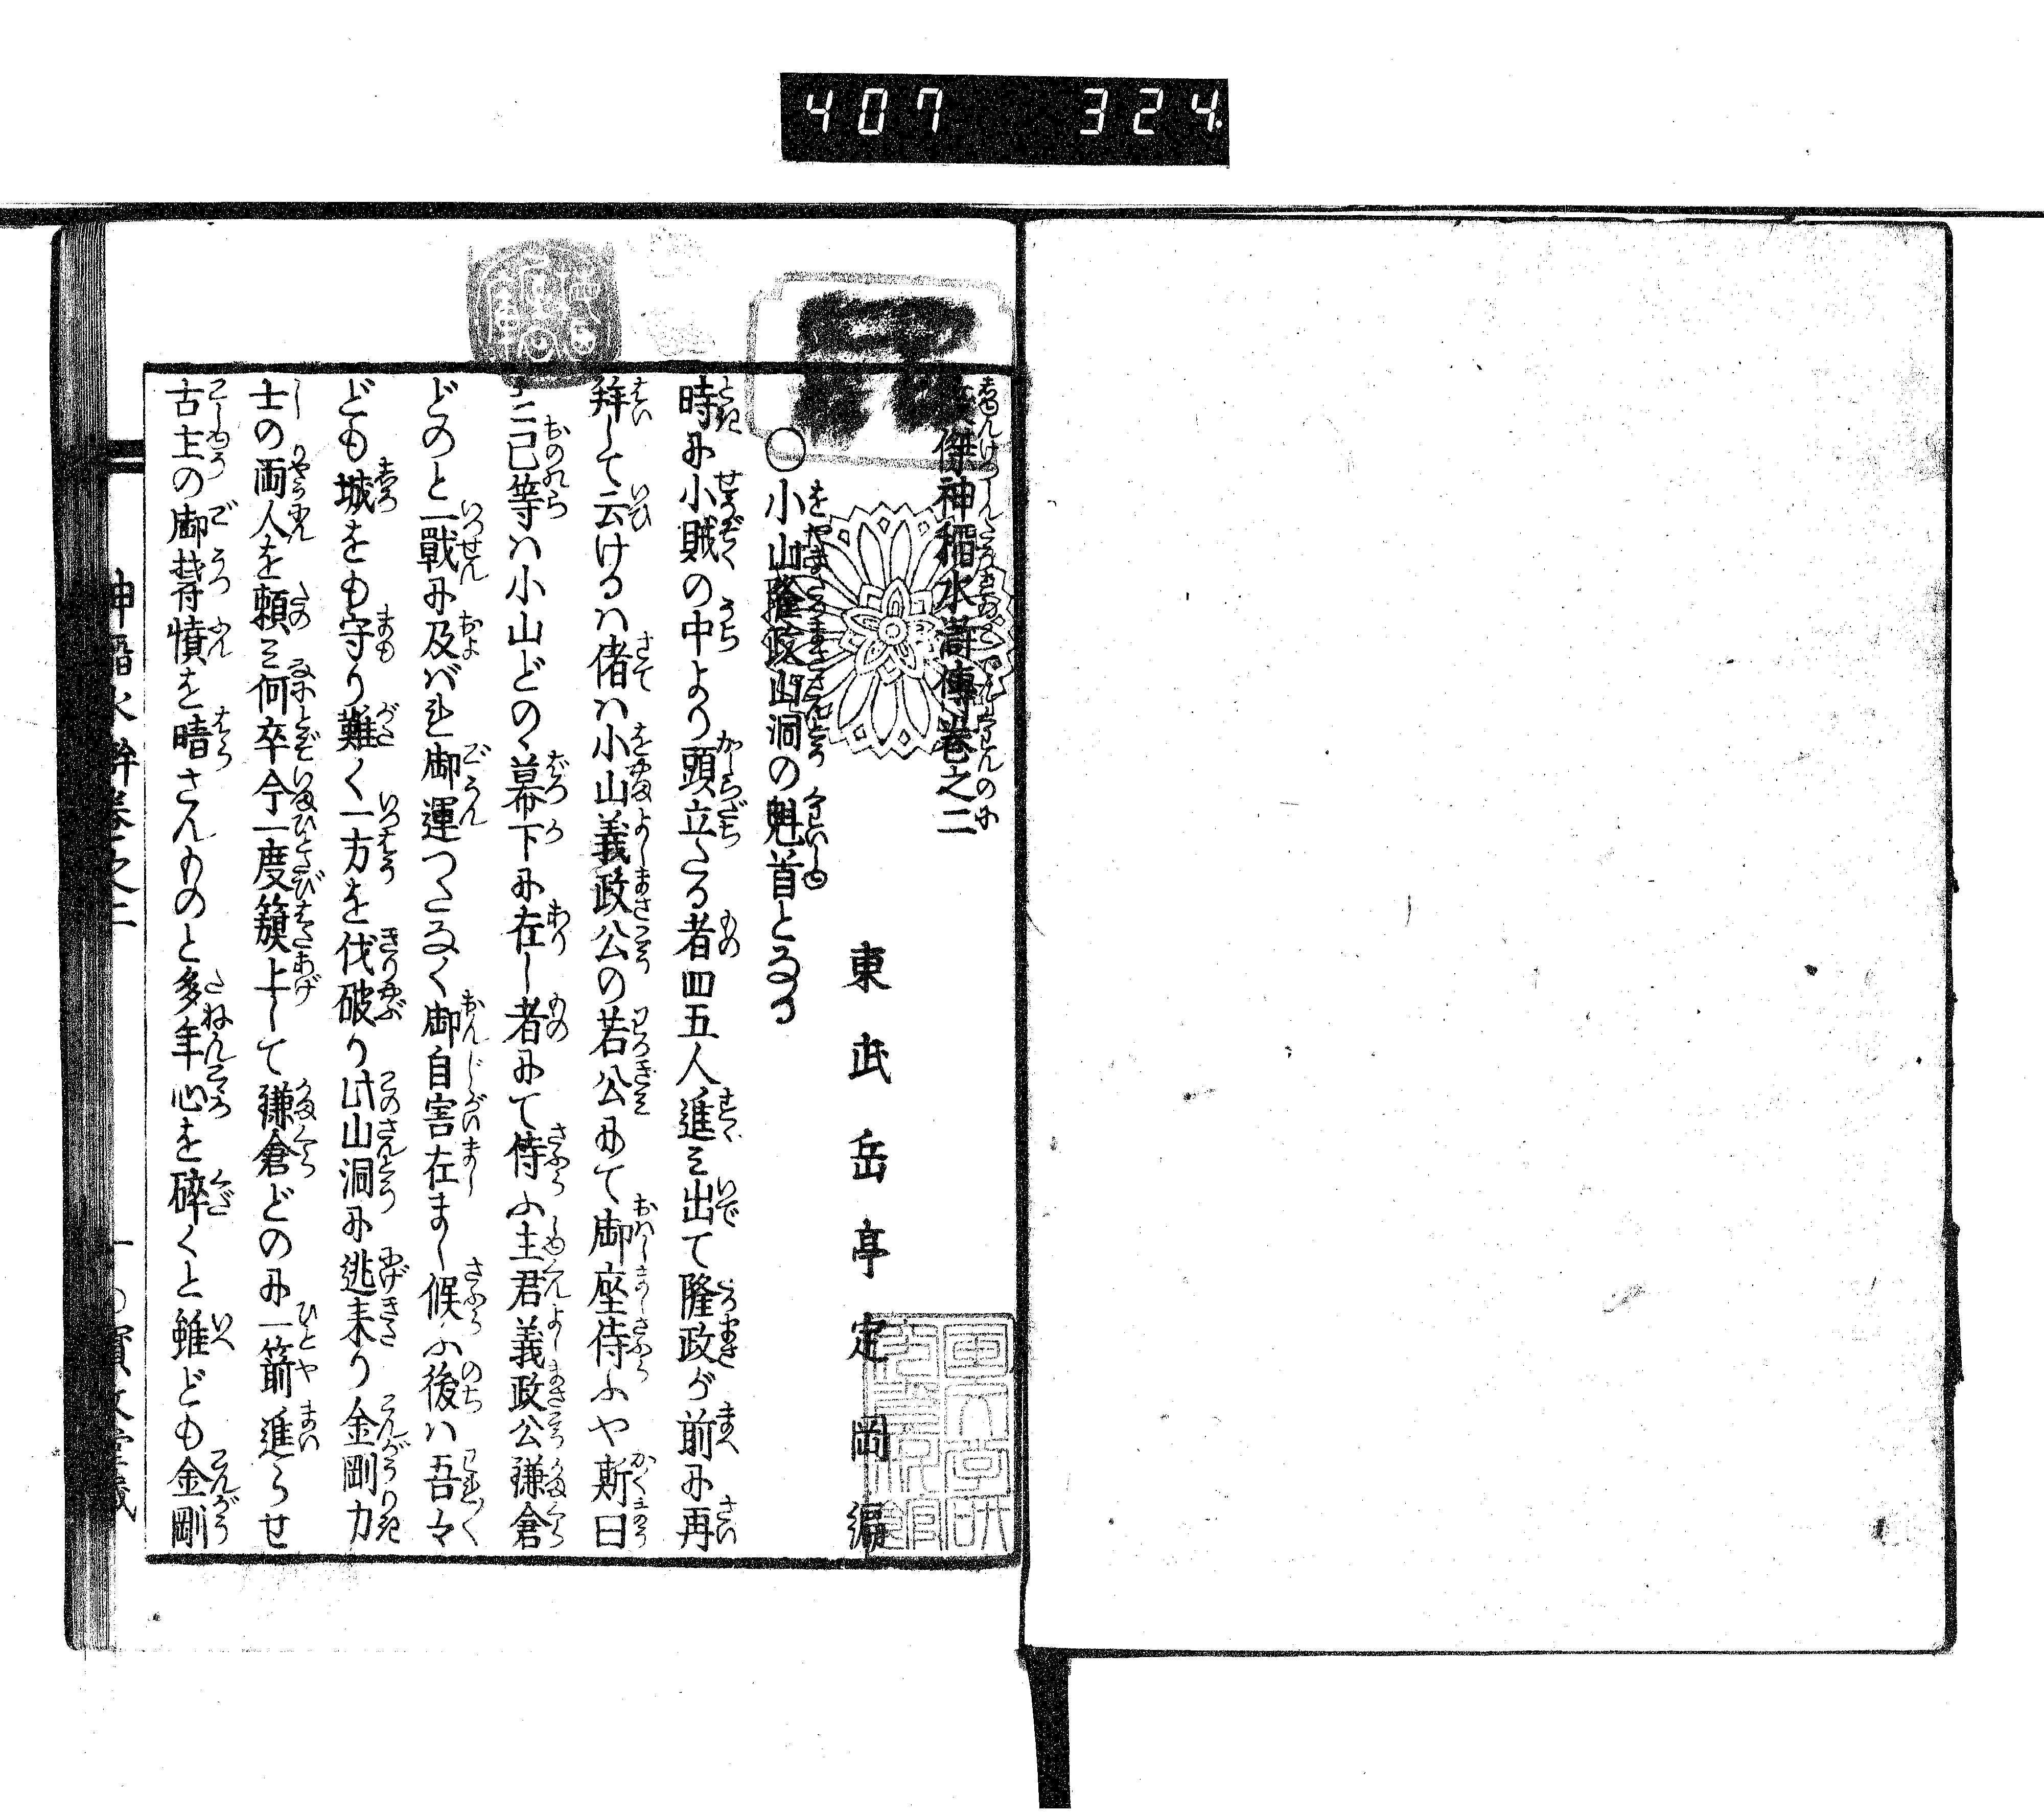 407 324
傑神稲水滸傳巻之二
東武岳亭定岡編
○小山隆政山洞の魁首となる
時に小賊の中より頭立たる者四五人進ミ出て隆政が前に再
拜して云けるハ偖ハ小山義政公の若公にて御座侍ふや斯曰
己等ハ小山どのゝ幕下に在し者にて侍ふ主君義政公鎌倉
どのと一戰に及バれ御運つたなく御自害在まし候ふ後ハ吾々
ども城をも守り難く一方を伐破り此山洞に逃来り金剛力
士の両人を頼ミ何卒今一度籏上して鎌倉どのに一箭進らせ
古主の御欝憤を晴さんものと多年心を碎くと雖ども金剛